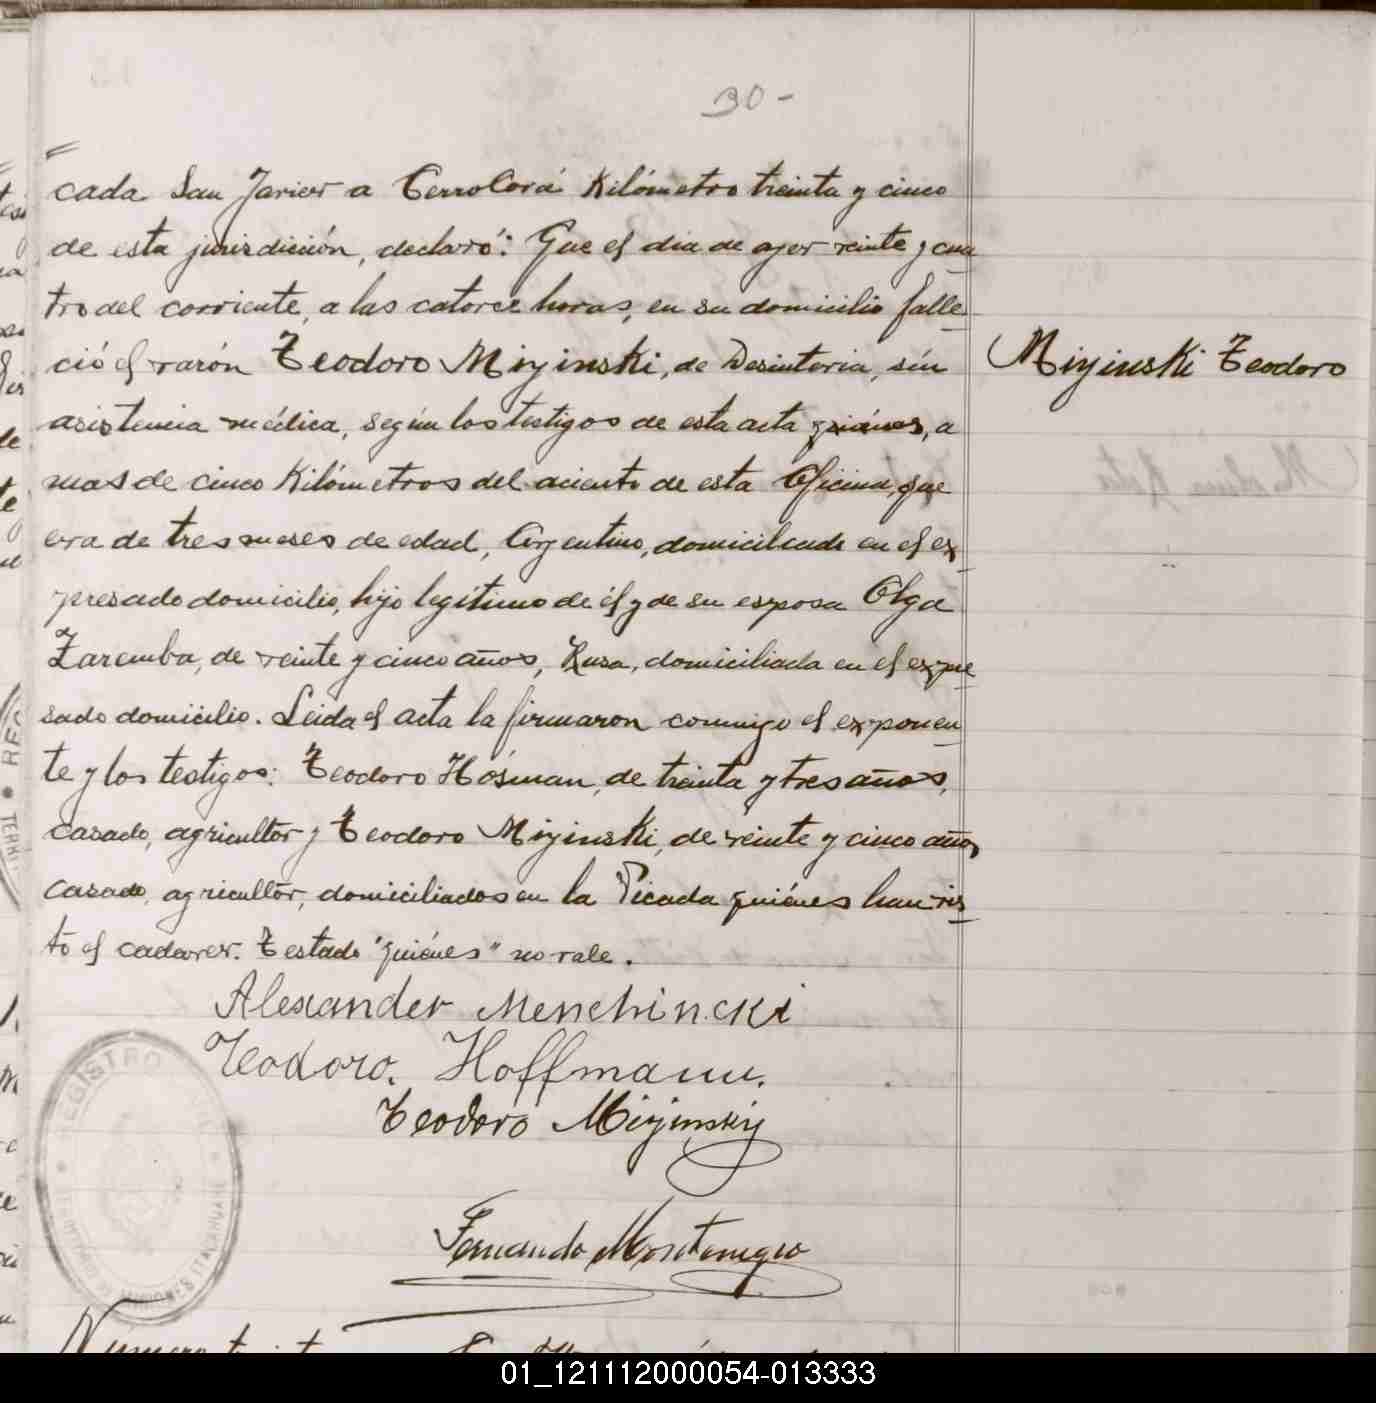 30-
cada San Javier a Cerro Corá Kilómetro treinta y cinco
de esta jurisdición, declaró: Que el dia de ayer veinte y cua
tro del corriente, a las catorce horas, en su domicilio falle
ció el varón Teodoro Miyinski, de Desinteria, sin
Miyinski Teodoro
asistencia médica, según los testigos de esta acta quiénes, a
mas de cinco Kilómetros del aciento de esta Oficina, que
era de tres meses de edad, Argentino, domiciliado en el ex
presado domicilio, hijo legítimo de él y de su esposa Olga
Zaremba, de veinte y cinco años, Rusa, domiciliada en el expre
sado domicilio. Leida el acta la firmaron conmigo el exponen
te y los testigos: Teodoro Hósman, de treinta y tres años,
casado, agricultor y Teodoro Miyinski, de veinte y cinco años
casado, agricultor, domiciliados en la Picada quiénes han vis
to el cadaver. Testado "quiénes" no vale.
Alexander Menchincki
Teodoro. Hoffmann.
Teodoro Miyinskiy
REGISTRO
MISIONES ITACARUARE
Fernando Montenegro
Número
01_121112000054-013333